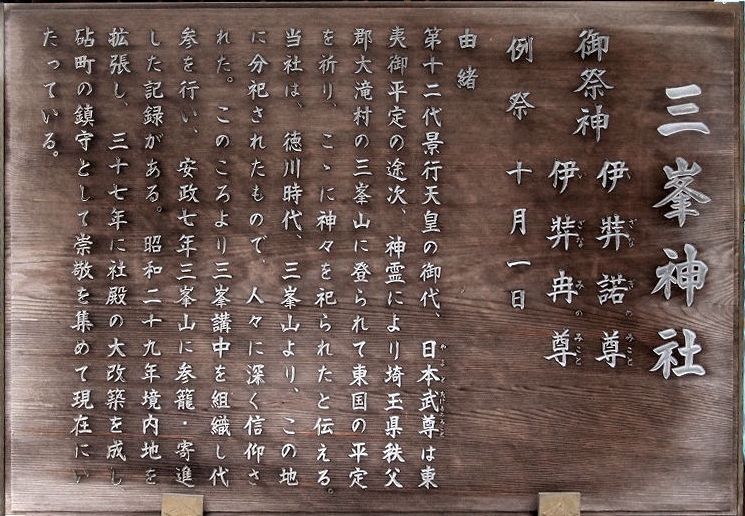 三峯神社
御祭神 伊弉諾尊
伊弉冉尊
例祭 十月一日
由緒
第十二代景行天皇の御代、日本武尊は東
夷御平定の途次、神霊により埼玉県秩父
郡大滝村の三峯山に登られて東国の平定
を祈り、こゝに神々を祀られたと伝える。
当社は、徳川時代、三峯山より、この地
に分祀されたもので、人々に深く信仰さ
れた。このころより三峯講中を組織し代
参を行い、安政七年三峯山に参籠・寄進
した記録がある。昭和二十九年境内地を
拡張し、三十七年に社殿の大改築を成し、
砧町の鎮守として崇敬を集めて現在にい
たっている。